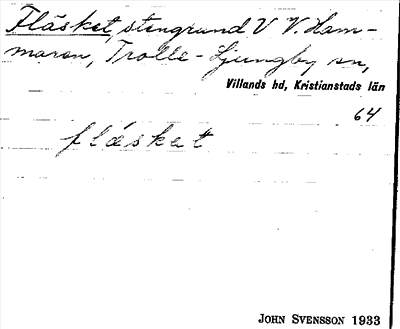 Fläsket, stengrund V V. Ham-
maren, Trolle-Ljungby sn,
Villands hd, Kristianstads län
64
fläsket
JOHN SVENSSON 1933